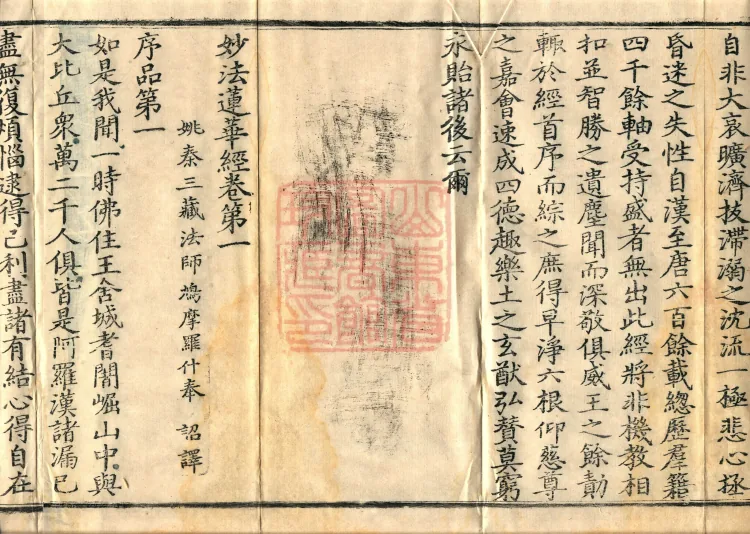 自非大哀曠濟拔滯溺之沈流一極悲心拯
昏迷之失性自漢至唐六百餘載總歷羣籍
四千餘軸受持盛者無出此經將非機教相
扣並智勝之遺塵聞而深敬俱威王之餘勣
輒於經首序而綜之庶得早淨六根仰慈尊
之嘉會速成四德趣樂土之玄猷弘贊莫窮
永貽諸後云爾
妙法蓮華經卷第一
姚秦三藏法師鳩摩羅什奉 詔譯
序品第一
如是我聞一時佛住王舍城耆闍崛山中與
大比丘眾萬二千人俱皆是阿羅漢諸漏已
盡無復煩惱逮得己利盡諸有結心得自在